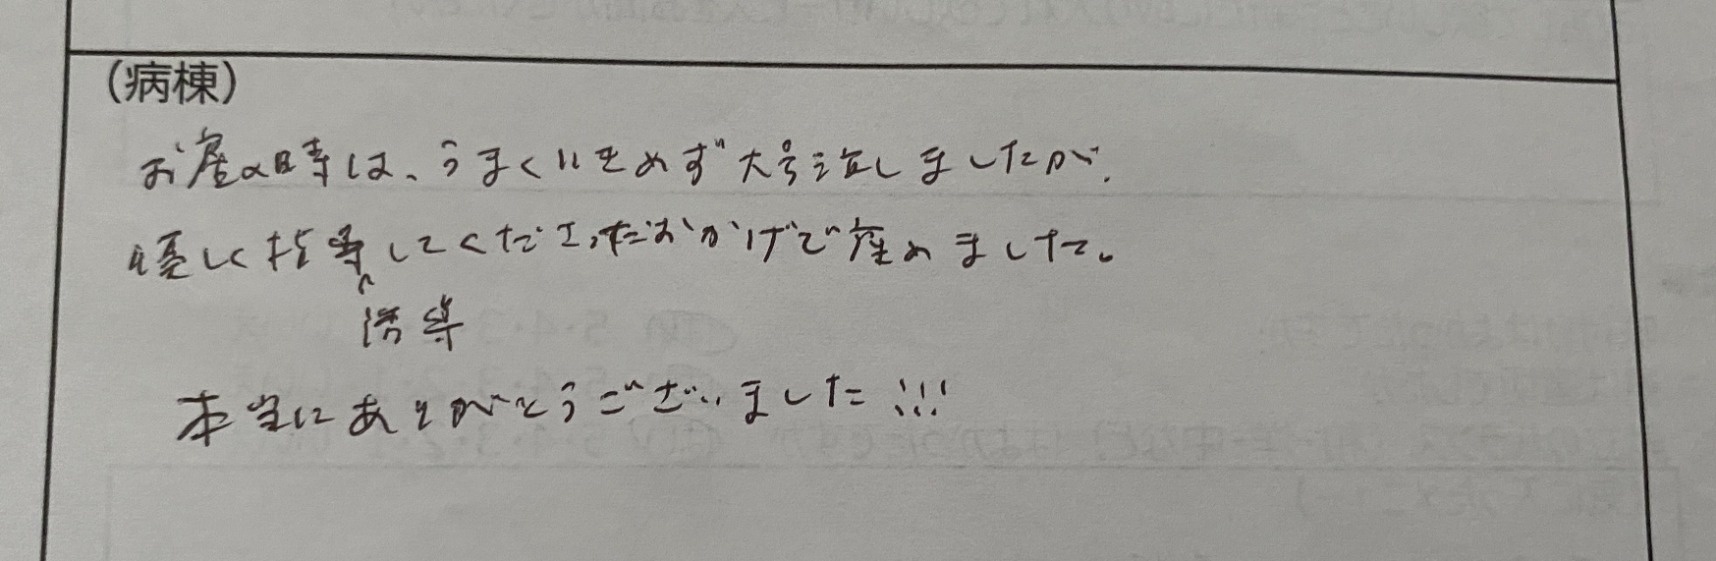 (病棟)
お産の時は、うまくいきめず大号泣しましたが、
優しく指導してくださったおかげで産めました。
誘導
本当にありがとうございました!!!